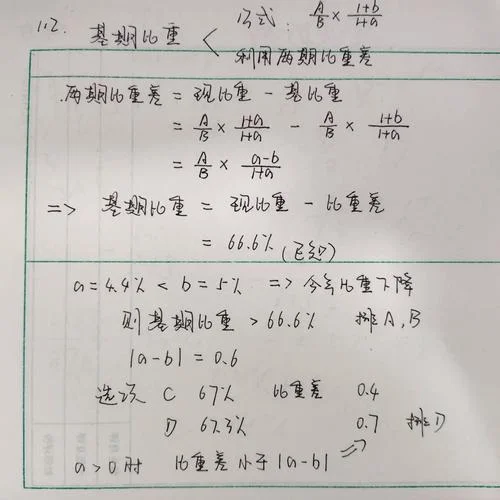 112. 基期比重 < 公式: A/B × 1+b/1+a
利用两期比重差
两期比重差 = 现比重 - 基比重
= A/B × 1+a/1+a - A/B × 1+b/1+a
= A/B × a-b/1+a
=> 基期比重 = 现比重 - 比重差
= 66.6% (已知)
a = 4.4% < b = 5% => 今年比重下降
则基期比重 > 66.6% 排A, B
|a-b| = 0.6
选项 C 67% 比重差 0.4
D 67.3% 0.7 排D
a > 0时 比重差小于|a-b| =>